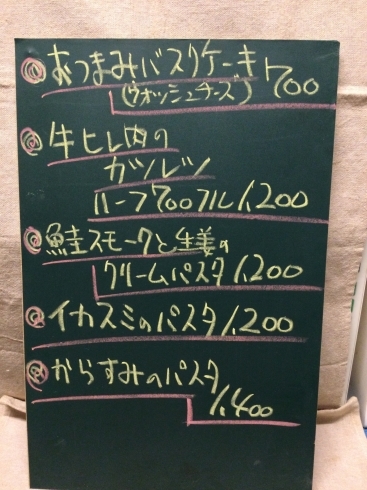 ◎おつまみバスクケーキ 700
(ウォッシュチーズ)
◎牛ヒレ肉の
カツレツ
ハーフ700フル1,200
◎鮭スモークと生姜の
クリームパスタ1,200
◎イカスミのパスタ1,200
◎からすみのパスタ
1,400